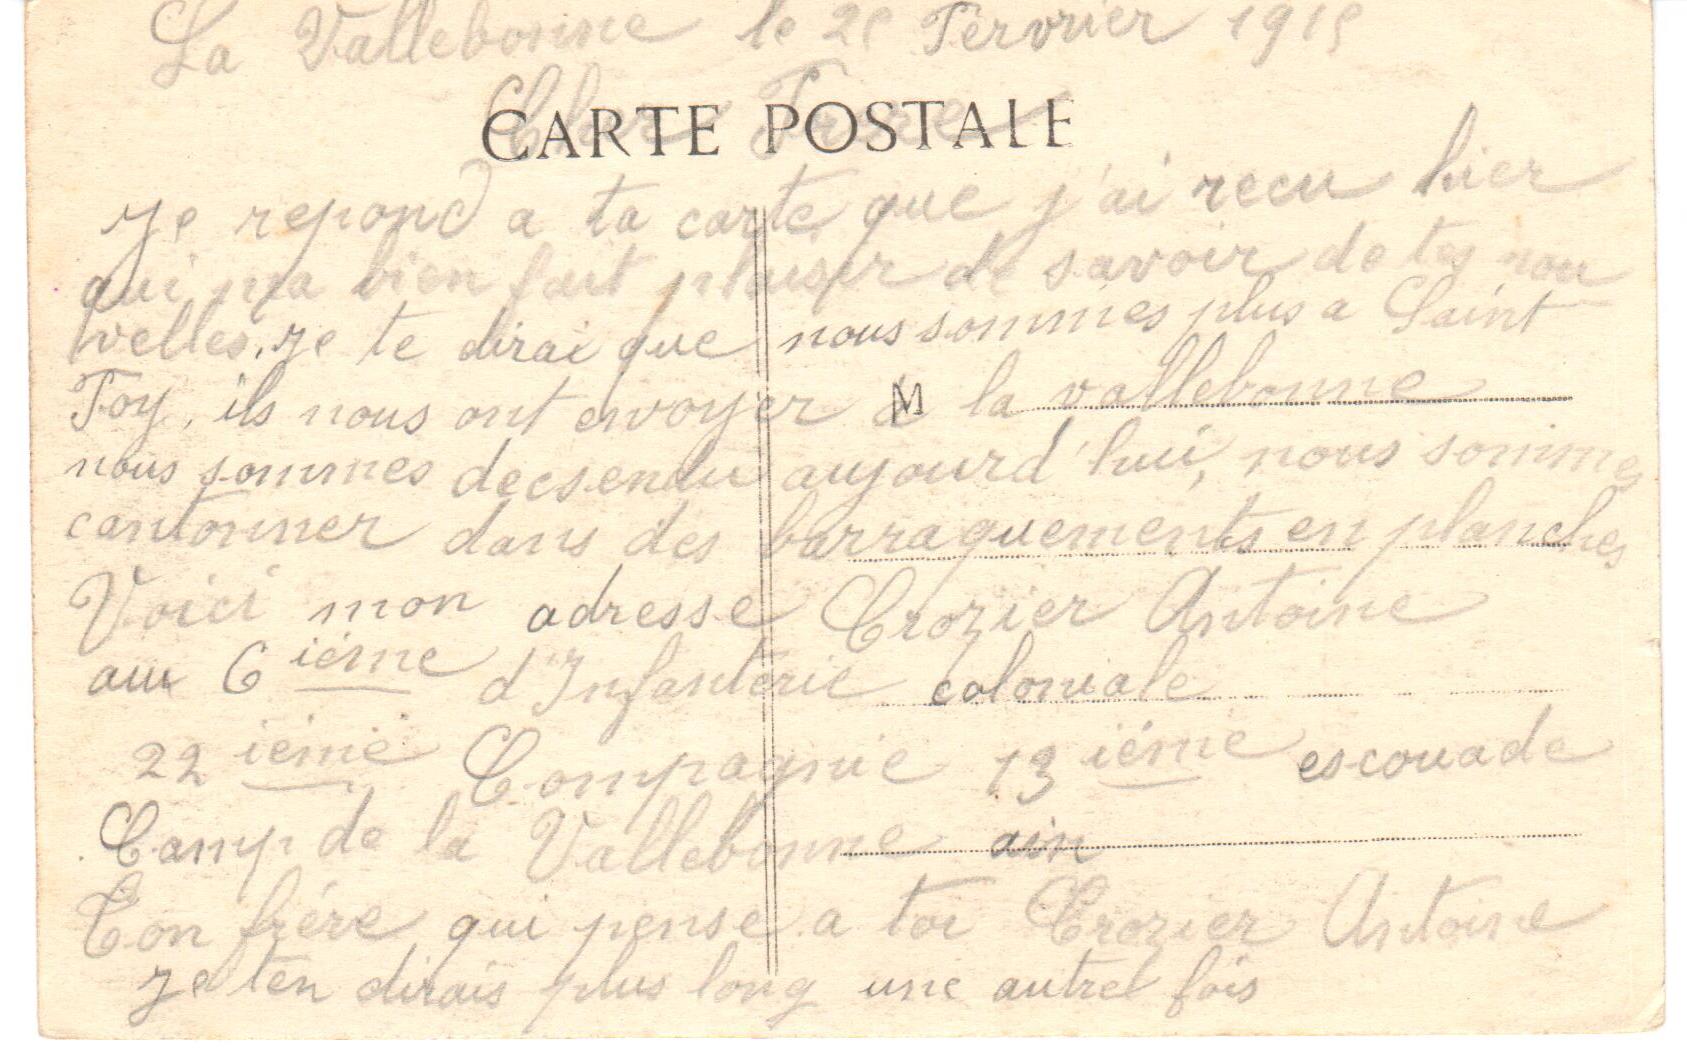 La Vallebonne le 25 Fervrier 1915
Cher Frere
CARTE POSTALE
Je repond a ta carte que j'ai recu hier
qui ma bien fait plaisir de savoir de tes nou
velles. Je te dirai que nous sommes plus a Saint
Foy, ils nous ont envoyer a la vallebonne
M
nous sommes decsendu aujourd'hui, nous sommes
cantonner dans des barraquements en planches
Voici mon adresse Crozier Antoine
au 6 ième d'Infanterie coloniale
22 ième Compagnie 13 ième escouade
Camp de la Vallebonne ain
Ton frère qui pense a toi Crozier Antoine
Je ten dirais plus long une autrel fois